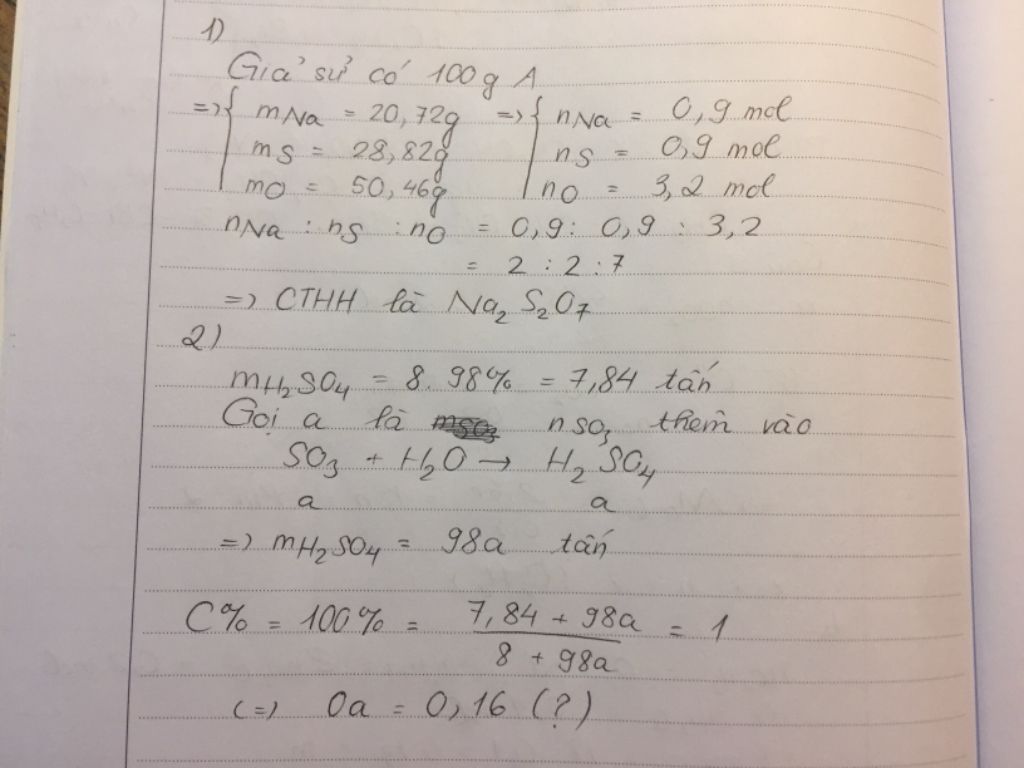 1)
Giả sử có 100g A
=> { mNa = 20,72g => { nNa = 0,9 mol
mS = 28,82g nS = 0,9 mol
mO = 50,46g nO = 3,2 mol
nNa : nS : nO = 0,9 : 0,9 : 3,2
= 2 : 2 : 7
=> CTHH là Na₂S₂O₇
2)
mH₂SO₄ = 8.98% = 7,84 tấn
Gọi a là nSO₃ thêm vào
SO₃ + H₂O → H₂SO₄
a a
=> mH₂SO₄ = 98a tấn
C% = 100% = (7,84 + 98a)/(8 + 98a) = 1
(=) 0a = 0,16 (?)